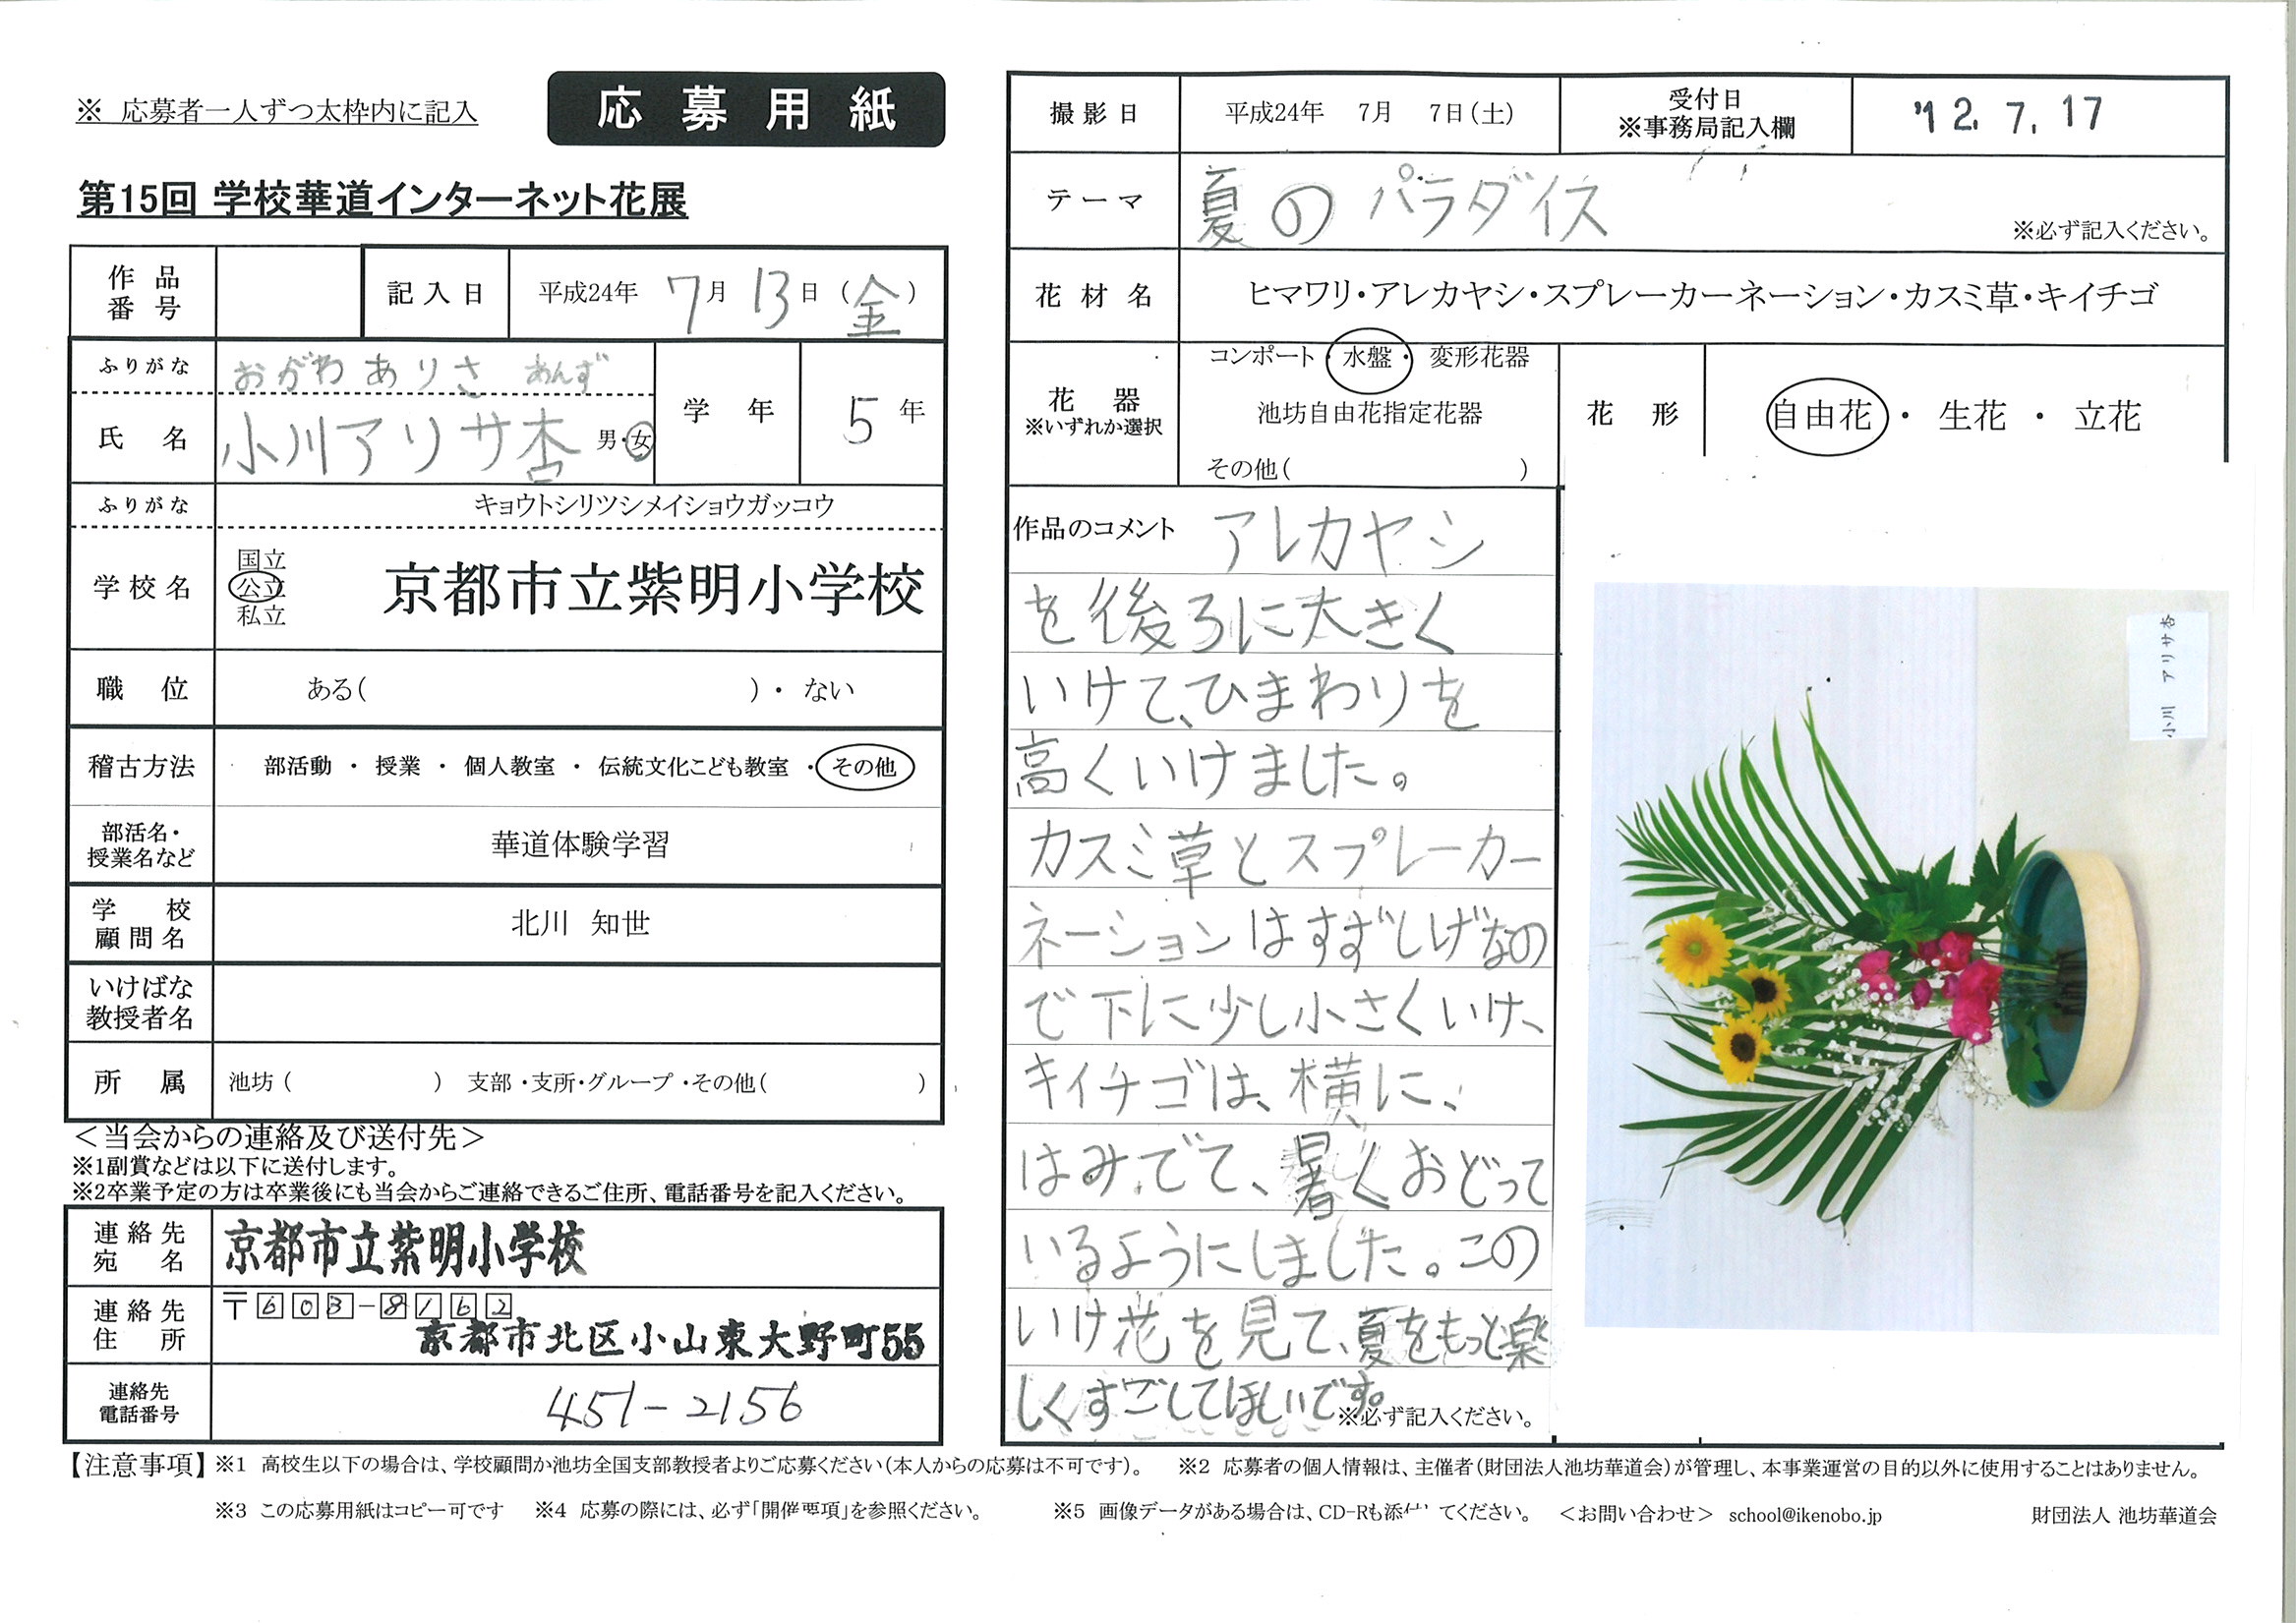 ※ 応募者一人ずつ太枠内に記入
応募用紙
第15回 学校華道インターネット花展
作品番号
記入日 平成24年 7月 13日 (金)
ふりがな おがわ ありさ あんず
氏名 小川アリサ杏 男・女
学年 5年
ふりがな キョウトシリツシメイショウガッコウ
学校名 国立 公立 私立 京都市立紫明小学校
職位 ある( )・ ない
稽古方法 部活動 ・ 授業 ・ 個人教室 ・ 伝統文化こども教室 ・その他
部活名・授業名など 華道体験学習
学校顧問名 北川 知世
いけばな教授者名
所属 池坊 ( ) 支部 ・支所・グループ ・その他( )
＜当会からの連絡及び送付先＞
※1副賞などは以下に送付します。
※2卒業予定の方は卒業後にも当会からご連絡できるご住所、電話番号を記入ください。
連絡先宛名 京都市立紫明小学校
連絡先住所 〒603-8162
京都市北区小山東大野町55
連絡先電話番号 451-2156
撮影日 平成24年 7月 7日(土)
受付日 ※事務局記入欄 '12. 7. 17
テーマ 夏のパラダイス
※必ず記入ください。
花材名 ヒマワリ・アレカヤシ・スプレーカーネーション・カスミ草・キイチゴ
花器 ※いずれか選択
コンポート・水盤・変形花器
池坊自由花指定花器
その他( )
花形 自由花 ・ 生花 ・ 立花
作品のコメント アレカヤシ
を後ろに大きく
いけて、ひまわりを
高くいけました。
カスミ草とスプレーカー
ネーションはすずしげなの
で下に少し小さくいけ、
キイチゴは、横に、
はみでて、暑くおどって
いるようにしました。この
いけ花を見て、夏をもっと楽
しくすごしてほしいです。
※必ず記入ください。
小川 アリサ杏
【注意事項】 ※1 高校生以下の場合は、学校顧問か池坊全国支部教授者よりご応募ください(本人からの応募は不可です)。 ※2 応募者の個人情報は、主催者(財団法人池坊華道会)が管理し、本事業運営の目的以外に使用することはありません。
※3 この応募用紙はコピー可です ※4 応募の際には、必ず「開催要項」を参照ください。 ※5 画像データがある場合は、CD-Rも添付してください。 ＜お問い合わせ＞ school@ikenobo.jp 財団法人 池坊華道会